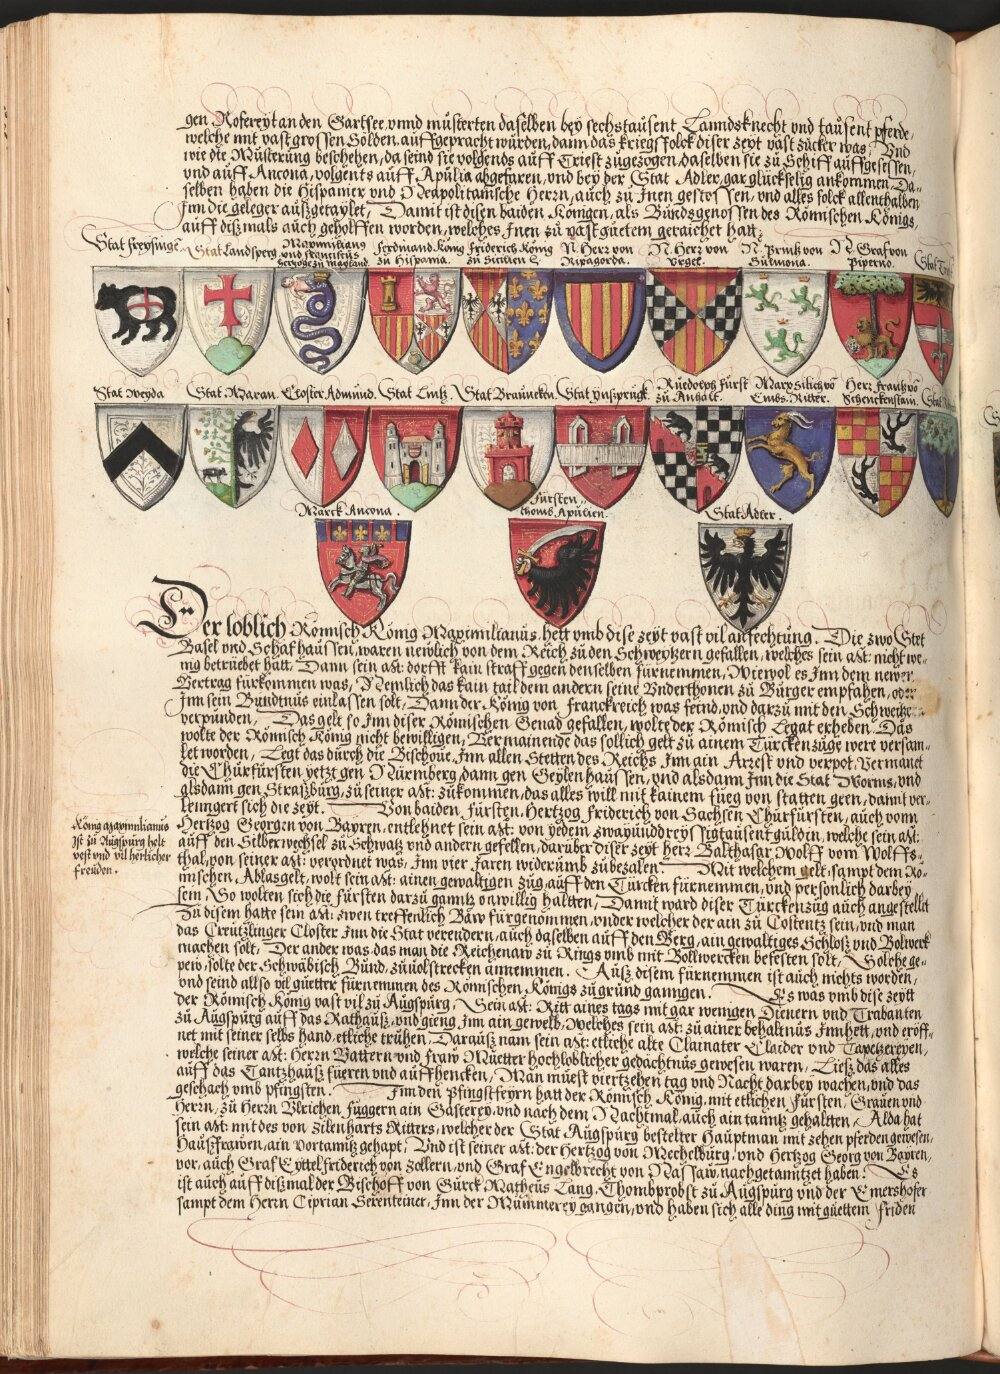 gen Rofereyt an den Gartsee, vnnd musterten daselben bey sechstausent Lanndsknecht vnd tausent pferde,
welche mit vast grossen Sölden, auffgepracht wurden, dann das kriegsfolck diser zeyt vast zucker was, Vnd
wie die Müsterung beschehen, da seind sie volgends auff Triest zugezogen, daselben sie zu Schiff auffgesessen,
vnd auff Ancona, volgents auff Apulia abgefaren, vnd bey der Stat Adler, gar glückselig ankommen, Da-
selben haben die Hispanier vnd Neapolitanische Herrn, auch zu Jnen gestossen, vnd alles folck allenthalben,
Jnn die geleger außgetaylet, Damit ist disen baiden Königen, als Bundsgenossen des Römischen Königs
auff dißmals auch geholffen worden, welches Jnen zu vast guetem geraichet hatt,
Stat freysingē.
Stat Landsperg.
Maximilians vnd franciscus Hertzogē zu Mayland.
Ferdinand König zu Hispania.
Friderich König zu Sicilien
N. Herr von Ripagorda.
N. Herr von Vrgel.
N. Printz von Sulmona.
N. Graf von Piperno.
Stat
Stat Weyda
Stat Maran.
Closter Admund.
Stat Lintz.
Stat Brauneckn
Stat Ynsprugk.
Ruedolph fürst zu Anhalt.
Marx Silich vō Embs. Ritter.
Herr frank vō Schenckenstain.
Stat
Marck Ancona.
Fürsten- thoms Apulien.
Stat Adler.
Der loblich Römisch König Maximilianus, hett vmb dise zeyt vast vil anfechtung. Die zwo Stet
Basel vnd Schafhaussen, waren newlich von dem Reich zu den Schweytzern gefallen, welches sein Mt: nicht we-
nig betruebet hatt, Dann sein Mt: dorfft kain straff gegen denselben fürnemmen, Wiewol es Jnn dem newen
Vertrag fürkommen was, Nemlich das kain tail dem andern seine Vnderthonen zu Bürger empfahen, oder
Jnn sein Bundtnus einlassen solt, Dann der König von Franckreich was feind, vnd darzu mit den Schweitzern
verpunden, Das gelt so Jnn diser Römischen Genad gefallen, wolte der Römisch Legat erheben, Das
wolte der Römisch König nicht bewilligen, Vermainende das sollich gelt zu ainem Türckenzuge were versam-
let worden, Legt das durch die Bischoue, Jnn allen Stetten des Reichs Jnn ain Arrest vnd verpot, Vermanet
die Churfürsten yetzt gen Nürmberg, dann gen Geylenhaussen, vnd alsdann Jnn die Stat Worms, vnd
alsdann gen Straßburg, zu seiner Mt: zukommen, das alles will mit kainem fueg von statten geen, damit ver-
lenngert sich die zeyt. Von baiden fürsten, Hertzog Friderich von Sachsen Churfürsten, auch vonn
Hertzog Georgen von Bayren, entlehnet sein Mt: von yedem zwayunddreyssigtausent guldin, welche sein Mt:
auff den Silberwechsel zu Schwatz vnd andern gefellen, darüber diser zeyt herr Balthasar Wolff vom Wolffs-
thal, von seiner Mt: verordnet was, Jnn vier Jaren widerumb zubezalen. Mit welchem gelt, sampt dem Rö-
mischen Ablasgelt, wolt sein Mt: ainen gewaltigen zug, auff den Türcken fürnemmen, vnd persönlich darbey
sein, So wolten sich die fürsten darzu ganntz onwillig haltten, Damit ward diser Türckenzug auch angestellt
Zu disem hatte sein Mt: zwen treffenlich Bäw fürgenommen, vnder welcher der ain zu Costentz sein, vnd man
das Creutzlinger Closter Jnn die Stat verendern, auch daselben auff den Berg, ain gewaltiges Schloß vnd Bolwerck
machen solt, Der ander was, das man die Reichenaw zu Rings vmb mit Bollwercken befesten solt, Solche ge-
pew, solte der Schwäbisch Bund, zuuolstrecken annemmen. Auß disem fürnemmen ist auch nichts worden,
vnd seind allso vil guetter fürnemmen des Römischen Königs zugrund ganngen. Es was vmb dise zeytt
der Römisch König vast vil zu Augspurg, Sein Mt: Ritt aines tags mit gar wenigen Dienern vnd Trabanten
zu Augspurg auff das Rathauß, vnd gieng Jnn ain gewelb, welches sein Mt: zu ainer behaltnus Jnnhett, vnd eröff-
net mit seiner selbs hand, etliche truhen, Daraus nam sein Mt: etliche alte Clainater Claider vnd Tapetzereyen,
welche seiner Mt: Herrn Vattern vnd fraw Muetter hochloblicher gedachtnus gewesen waren, Ließ das alles
auff das Tantzhauß füeren vnd auffhencken, Man muest viertzehen tag vnd Nacht darbey wachen, vnd das
geschach vmb pfingsten. Jnn den Pfingstfeyrn hatt der Römisch König, mit etlichen Fürsten, Grauen vnd
Herrn, zu Herrn Vlrichen Fuggern ain Gasterey, vnd nach dem Nachtmal, auch ain tanntz gehaltten, Alda hat
sein Mt: mit des von Zilenharts Ritters, welcher der Stat Augspurg bestelter Hauptman mit zehen pferden gewesen,
Haußfrawen, ain Vortanntz gehapt, Vnd ist seiner Mt: der Hertzog von Mechelburg, vnd Hertzog Georg von Bayren,
vor, auch Graf Eyttelfriderich von Zollern, vnd Graf Engelbrecht von Nassaw, nachgetanntzet haben. Es
ist auch auff dißmal der Bischoff von Gurck Matheus Lang, Thombprobst zu Augspurg vnd der Emershofer
sampt dem Herrn Ciprian Serenteiner, Jnn der Mummerey gangen, vnd haben sich alle ding mit guettem friden
König Maximilianus
Ist zu Augspurg helt
vest vnd vil herlicher
freuden.